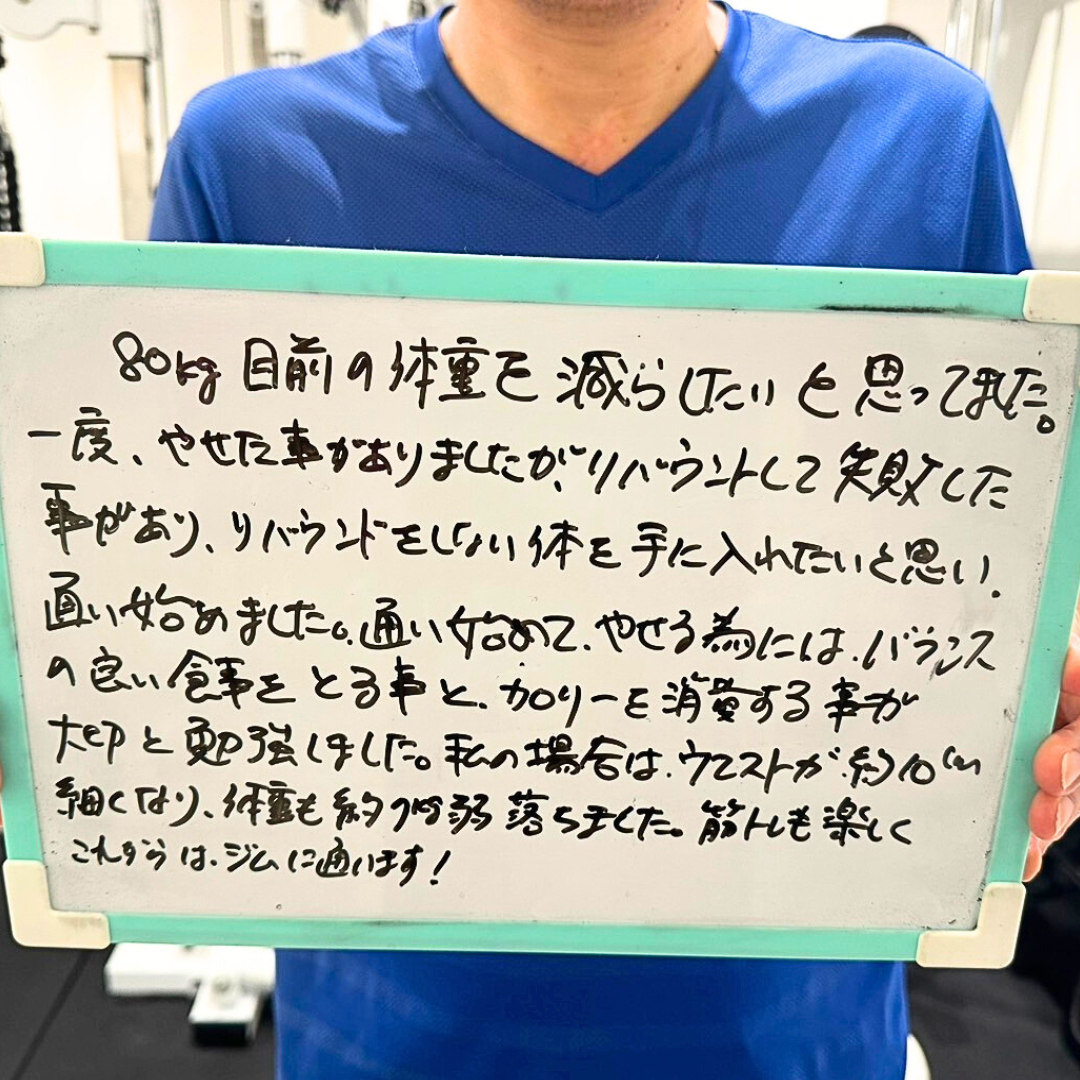 80kg目前の体重を減らしたいと思ってました。
一度、やせた事がありましたが、リバウントして失敗した
事があり、リバウンドをしない体を手に入れたいと思い、
通い始めました。通い始めて、やせる為には、バランス
の良い食事をとる事と、カロリーを消費する事が
大切と勉強しました。私の場合は、ウエストが約10cm
細くなり、体重も約 落ちました。筋トレも楽しく
これからは、ジムに通います!